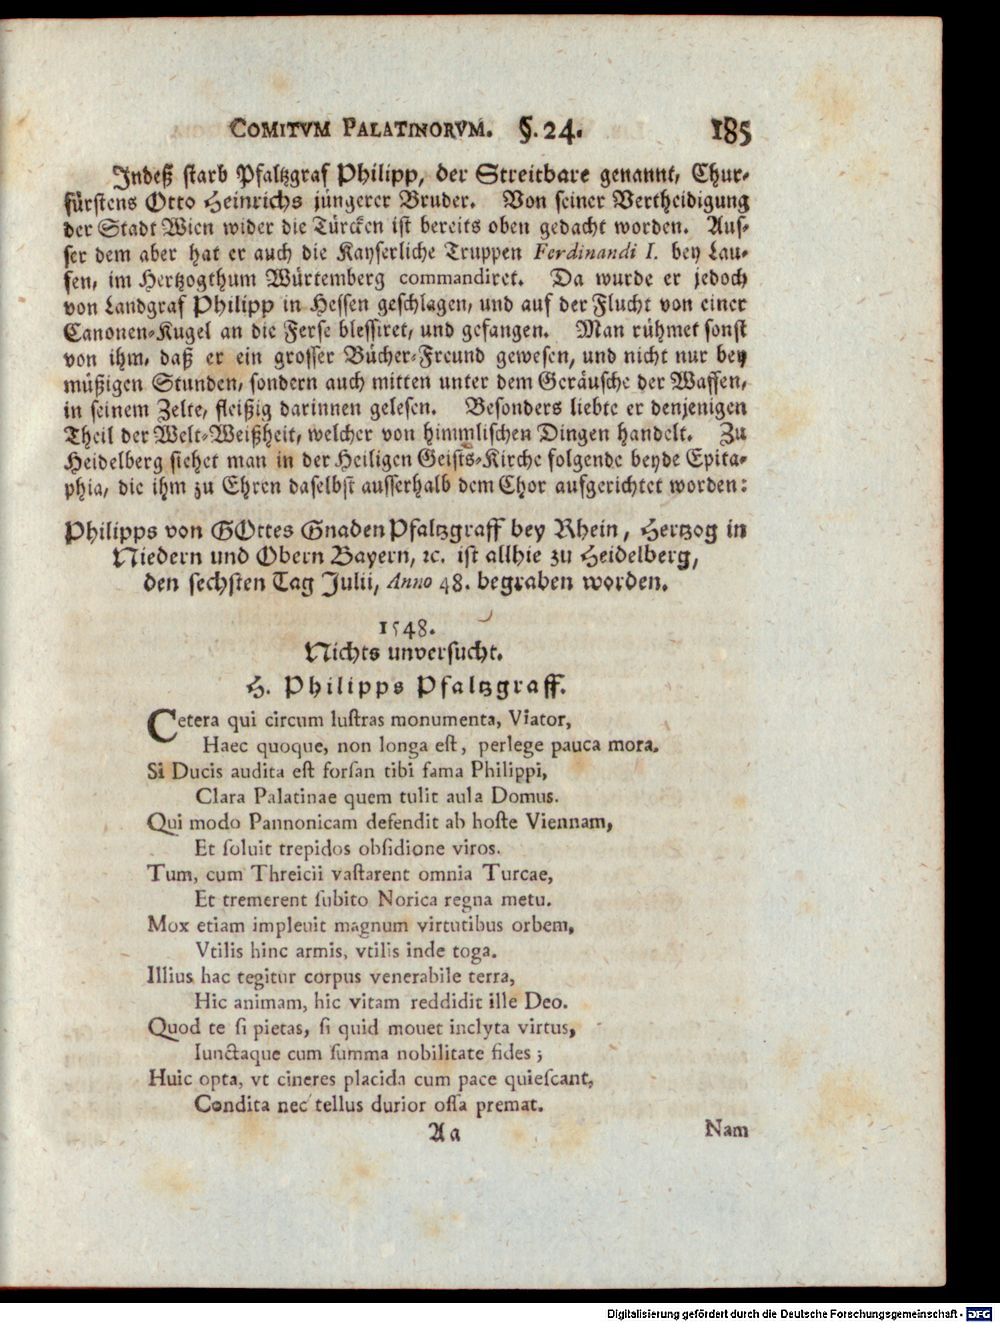 COMITVM PALATINORVM. §. 24. 185
Indeß starb Pfaltzgraf Philipp, der Streitbare genannt, Chur-
fürstens Otto Heinrichs jüngerer Bruder. Von seiner Vertheidigung
der Stadt Wien wider die Türcken ist bereits oben gedacht worden. Aus-
ser dem aber hat er auch die Kayserliche Truppen Ferdinandi I. bey Lau-
fen, im Hertzogthum Würtemberg commandiret. Da wurde er jedoch
von Landgraf Philipp in Hessen geschlagen, und auf der Flucht von einer
Canonen-Kugel an die Ferse blessiret, und gefangen. Man rühmet sonst
von ihm, daß er ein grosser Bücher-Freund gewesen, und nicht nur bey
müßigen Stunden, sondern auch mitten unter dem Geräusche der Waffen,
in seinem Zelte, fleißig darinnen gelesen. Besonders liebte er denjenigen
Theil der Welt-Weißheit, welcher von himmlischen Dingen handelt. Zu
Heidelberg siehet man in der Heiligen Geists-Kirche folgende beyde Epita-
phia, die ihm zu Ehren daselbst ausserhalb dem Chor aufgerichtet worden:
Philipps von GOttes Gnaden Pfaltzgraff bey Rhein, Hertzog in
Niedern und Obern Bayern, ꝛc. ist allhie zu Heidelberg,
den sechsten Tag Julii, Anno 48. begraben worden.
1548.
Nichts unversucht.
H. Philipps Pfaltzgraff.
Cetera qui circum luſtras monumenta, Viator,
Haec quoque, non longa eſt, perlege pauca mora.
Si Ducis audita eſt forſan tibi fama Philippi,
Clara Palatinae quem tulit aula Domus.
Qui modo Pannonicam defendit ab hoſte Viennam,
Et ſoluit trepidos obſidione viros.
Tum, cum Threicii vaſtarent omnia Turcae,
Et tremerent ſubito Norica regna metu.
Mox etiam impleuit magnum virtutibus orbem,
Vtilis hinc armis, vtilis inde toga.
Illius hac tegitur corpus venerabile terra,
Hic animam, hic vitam reddidit ille Deo.
Quod te ſi pietas, ſi quid mouet inclyta virtus,
Iunctaque cum ſumma nobilitate fides;
Huic opta, vt cineres placida cum pace quieſcant,
Condita nec tellus durior oſſa premat.
Aa Nam
Digitalisierung gefördert durch die Deutsche Forschungsgemeinschaft - DFG